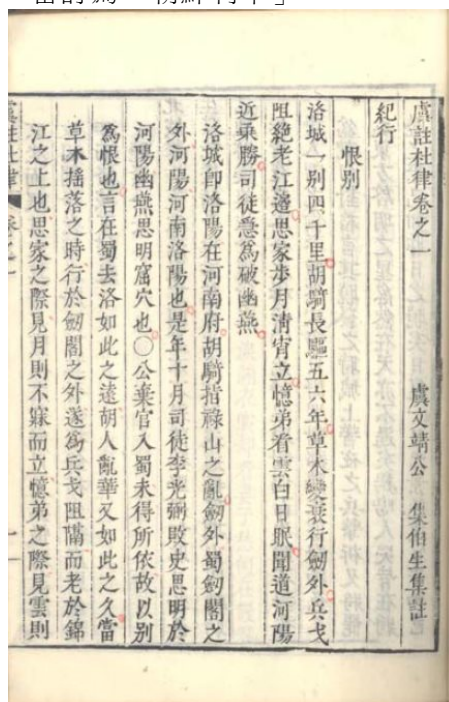 朝鮮刊本」
虞註杜律卷之一 虞文靖公 集伯生集註
紀行
恨別
洛城一別四千里胡騎長驅五六年草木變衰行劒外兵戈
阻絶老江邉思家步月淸宵立憶弟看雲白日眠聞道河陽
近乘勝司徒急爲破幽燕
洛城即洛陽在河南府胡騎指祿山之亂劒外蜀劒閣之
外河陽河南洛陽也是年十月司徒李光弼敗史思明於
河陽幽燕思明窟穴也○公棄官入蜀未得所依故以別
爲恨也言在蜀去洛如此之遠胡人亂華又如此之久當
草木搖落之時行於劒閣之外遂爲兵戈阻隔而老於錦
江之上也思家之際見月則不寐而立憶弟之際見雲則